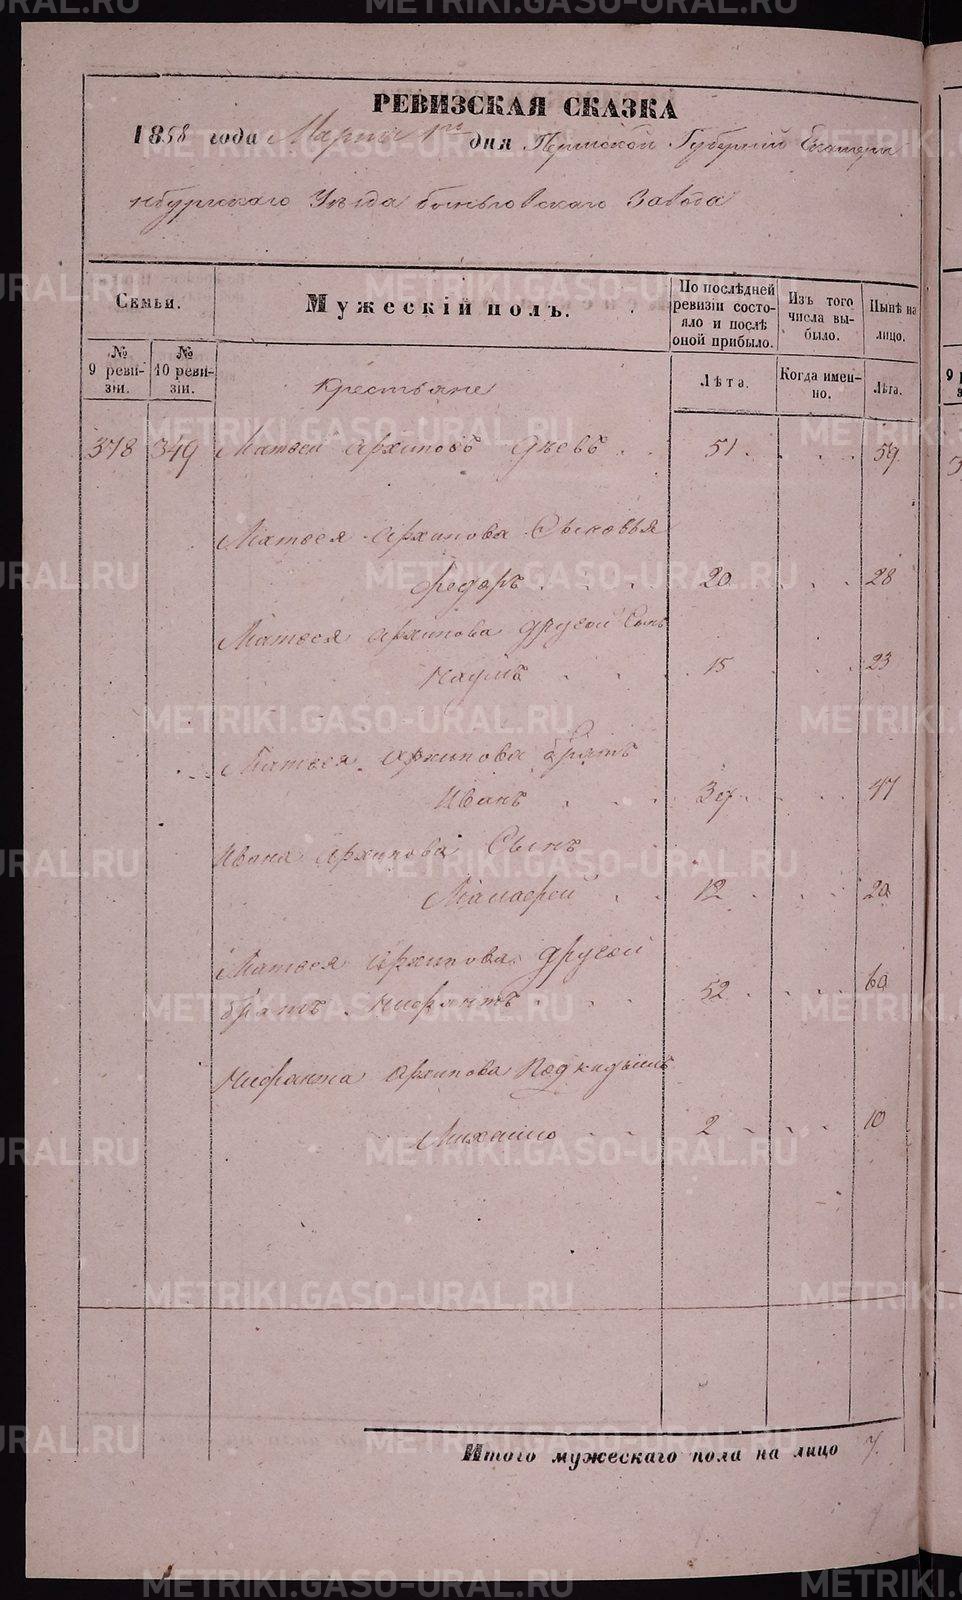 РЕВИЗСКАЯ СКАЗКА
1858 года Марта 1го дня Пермской Губерніи Екатерин
нбургскаго Уѣзда Быньговскаго Завода
Семьи.
Мужескій полъ.
По послѣдней ревизіи состояло и послѣ оной прибыло.
Изъ того числа выбыло.
Нынѣ на лицо.
№ 9 ревизіи.
№ 10 ревизіи.
Крестьяне
Лѣта.
Когда именно.
Лѣта.
378 349 Матвей Архиповъ 51 59
Матвея Архипова Сыновья
Федоръ 20 28
Матвея Архипова другой Сынъ
Наумъ 15 23
Матвея Архипова Братъ
Иванъ 39 47
Ивана Архипова Сынъ
Малафей 12 20
Матвея Архипова другой
братъ Нифантъ 52 60
Нифанта Архипова Подкидышъ
Михаило 2 10
Итого мужескаго пола на лицо 7.
METRIKI.GASO-URAL.RU